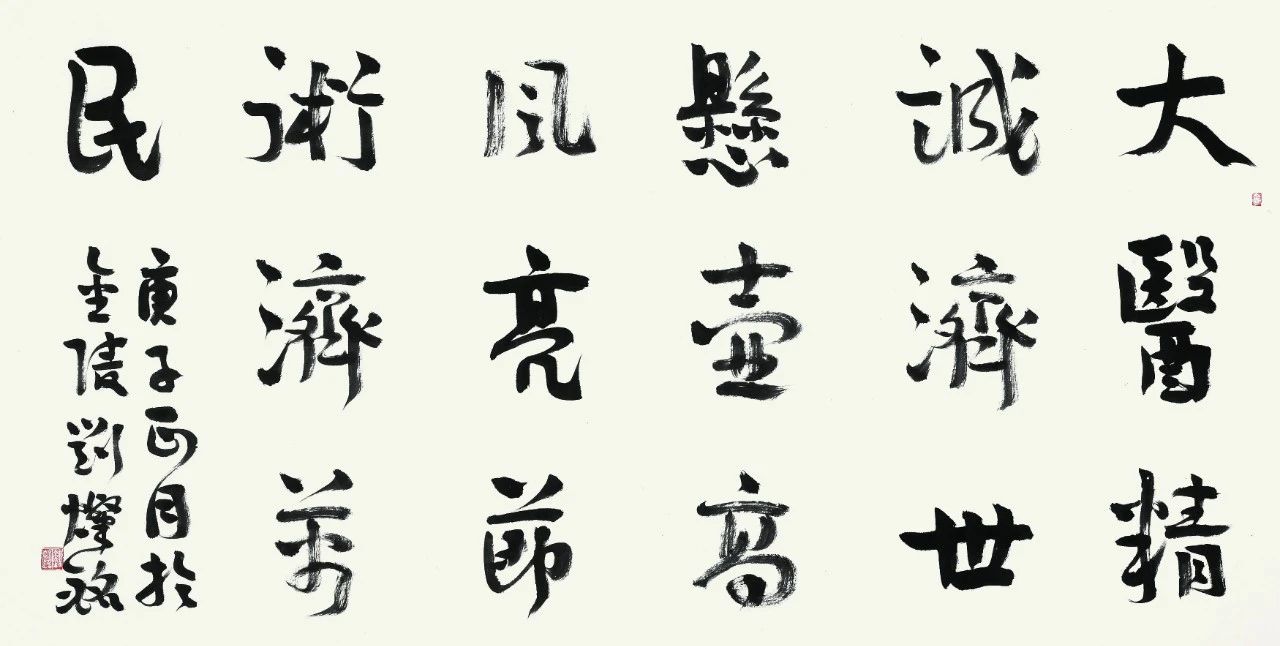 大醫精
誠濟世
懸壺高
風亮節
術濟萬
民
庚子正月於
金陵劉燦銘